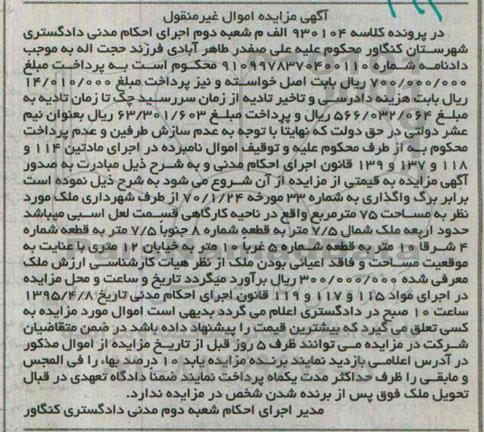 آگهی مزایده اموال غیرمنقول
در پرونده کلاسه ۹۳۰۱۰۴ الف م شعبه دوم اجرای احکام مدنی دادگستری
شهرستان کنگاور محکوم علیه علی صفدر طاهر آبادی فرزند حجت اله به موجب
دادنامه شماره ۹۱۰۹۹۷۸۳۷۰۴۰۰۱۱۰ محکوم است به پرداخت مبلغ
ریال بابت اصل خواسته و نیز پرداخت مبلغ ۱۴/۰۱۰/۰۰۰
ریال بابت هزینه دادرسی و تاخیر تادیه از زمان سررسید چک تا زمان تادیه به
مبلغ ۵۶۶/۰۳۲/۰۶۴ ریال و پرداخت مبلغ ۶۳/۳۰۱/۶۰۳ ریال بعنوان نیم
عشر دولتی در حق دولت که نهایتا با توجه به عدم سازش طرفین و عدم پرداخت
محکوم به از طرف محکوم علیه و توقیف اموال نامبرده در اجرای مادتین ۱۱۴ و
۱۱۸ و ۱۳۷ و ۱۳۹ قانون اجرای احکام مدنی و به شرح ذیل مبادرت به صدور
آگهی مزایده به قیمتی از مزایده از آن شروع می شود به شرح ذیل نموده است
برابر برگ واگذاری به شماره ۳۳ مورخه ۷۰/۱/۲۴ از طرف شهرداری ملک مورد
نظر به مساحت ۷۵ مترمربع واقع در ناحیه کارگاهی قسمت لعل اسبی میباشد
حدود اربعه ملک شمال ۷/۵ متر به قطعه شماره ۸ جنوباً ۷/۵ متر به قطعه شماره
۴ شرقا ۱۰ متر به قطعه شماره ۵ غرباً ۱۰ متر به خیابان ۱۲ متری با عنایت به
موقعیت مساحت و فاقد اعیانی بودن ملک از نظر هیات کارشناسی ارزش ملک
معرفی شده ۳۰۰/۰۰۰/۰۰۰ ریال برآورد میگردد تاریخ و ساعت و محل مزایده
در اجرای مواد ۱۱۵ و ۱۱۷ و ۱۱۹ قانون اجرای احکام مدنی تاریخ ۱۳۹۵/۴/۸
ساعت ۱۰ صبح در دادگستری اعلام می گردد بدیهی است اموال مورد مزایده به
کسی تعلق می گیرد که بیشترین قیمت را پیشنهاد داده باشد در ضمن متقاضیان
شرکت در مزایده می توانند ظرف ۵ روز قبل از تاریخ مزایده از اموال مذکور
در آدرس اعلامی بازدید نمایند برنده مزایده باید ۱۰ درصد بهاء را فی المجس
و مابقی را ظرف حداکثر مدت یکماه پرداخت نمایند ضمنا دادگاه تعهدی در قبال
تحویل ملک فوق پس از برنده شدن شخص در مزایده ندارد.
مدیر اجرای احکام شعبه دوم مدنی دادگستری کنگاور